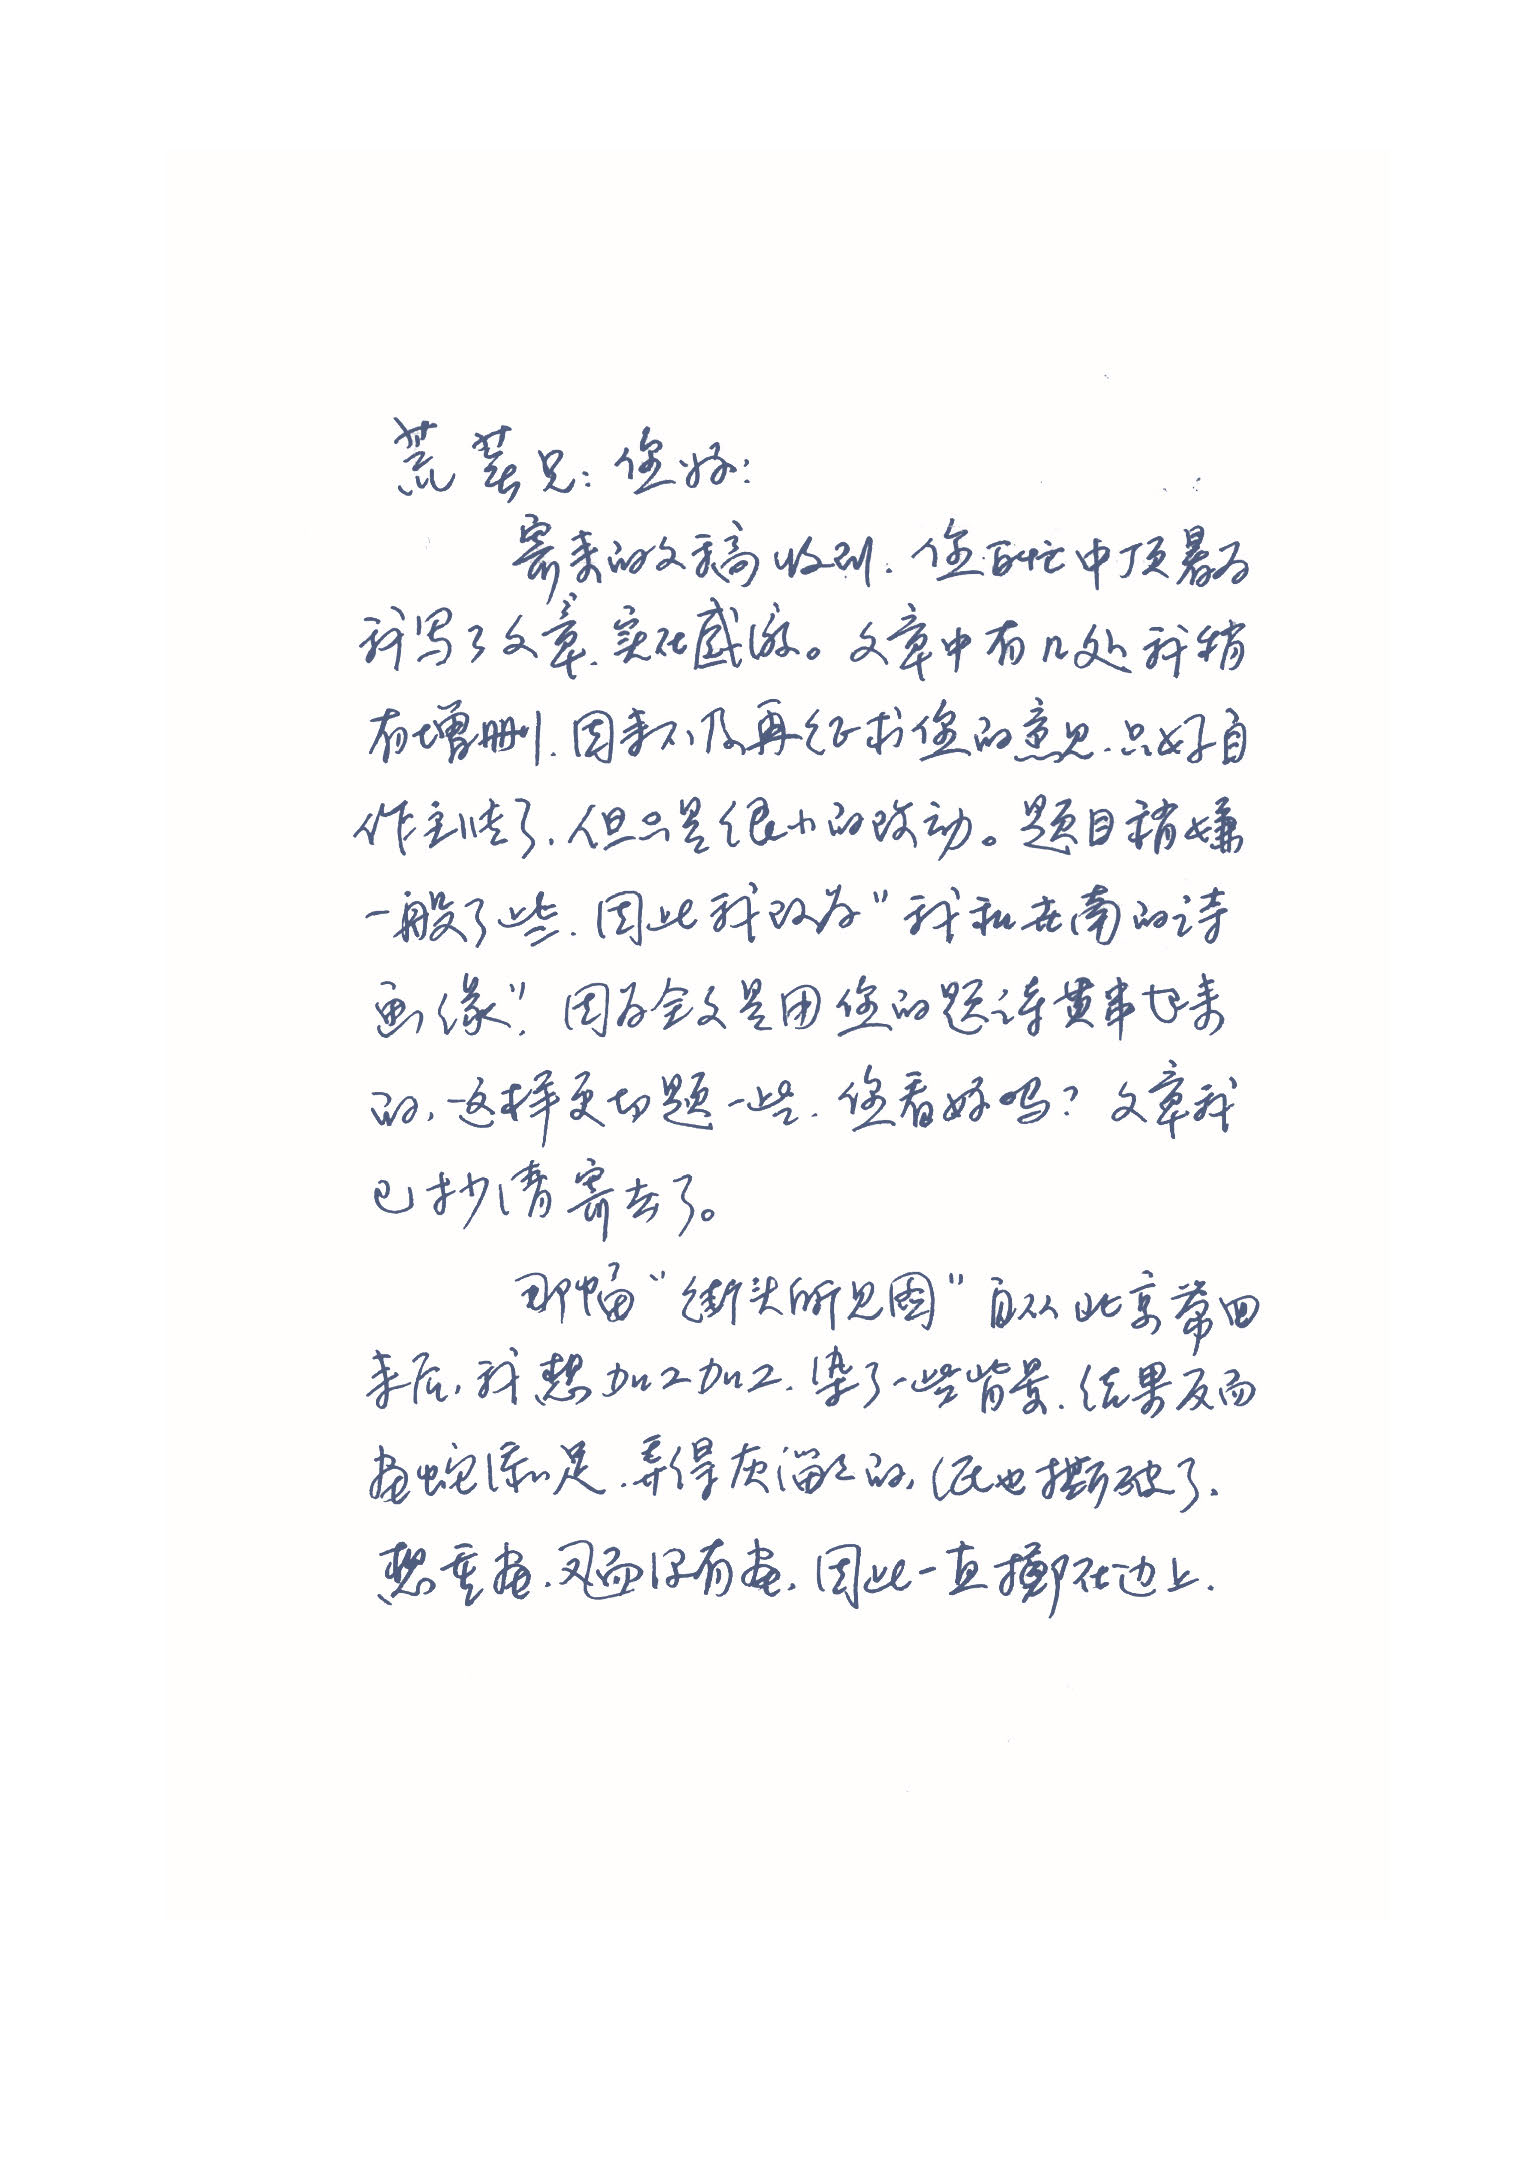 荒芜兄：您好：
寄来的文稿收到．您百忙中顶暑为
我写了文章．实在感激。文章中有几处我稍
有增删．因来不及再征求您的意见．只好自
作主张了．但只是很小的改动。题目稍嫌
一般了些．因此我改为“我和世南的诗
画缘”．因为全文是用您的题诗贯串起来
的，这样更切题一些．您看好吗？文章我
已抄清寄去了。
那幅“街头所见图”自从北京带回
来后，我想加工加工．染了一些背景．结果反而
画蛇添足．弄得灰溜之的，纸也撕破了．
想重画．又而没有画．因此一直掷在边上．